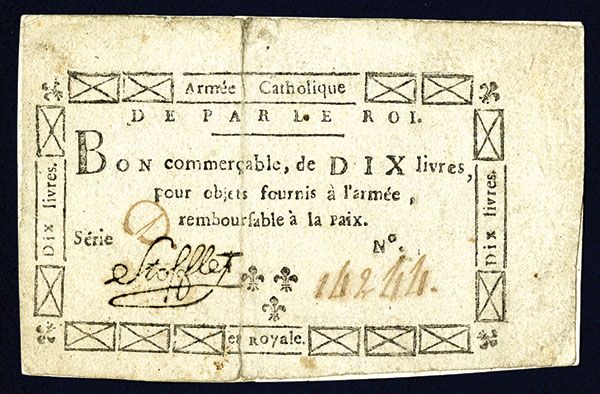 Armée Catholique
DE PAR LE ROI.
BON commerçable, de DIX livres,
pour objets fournis à l'armée,
remboursable à la PAIX.
Série D
N°. 14244.
Stofflet
Dix livres.
Dix livres.
et ROYALE.